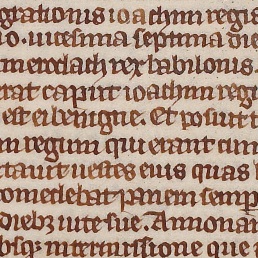 grationis ioachim regis
io. uicesima septima die
merodach rex babilonis
erat caput ioachim regi
est ei benigne. Et posuit t
m regum qui erant cum
utauit uestes eius quas
comedebat panem semper
diebꝫ uite sue. Annonam
absqꝫ intermissione que